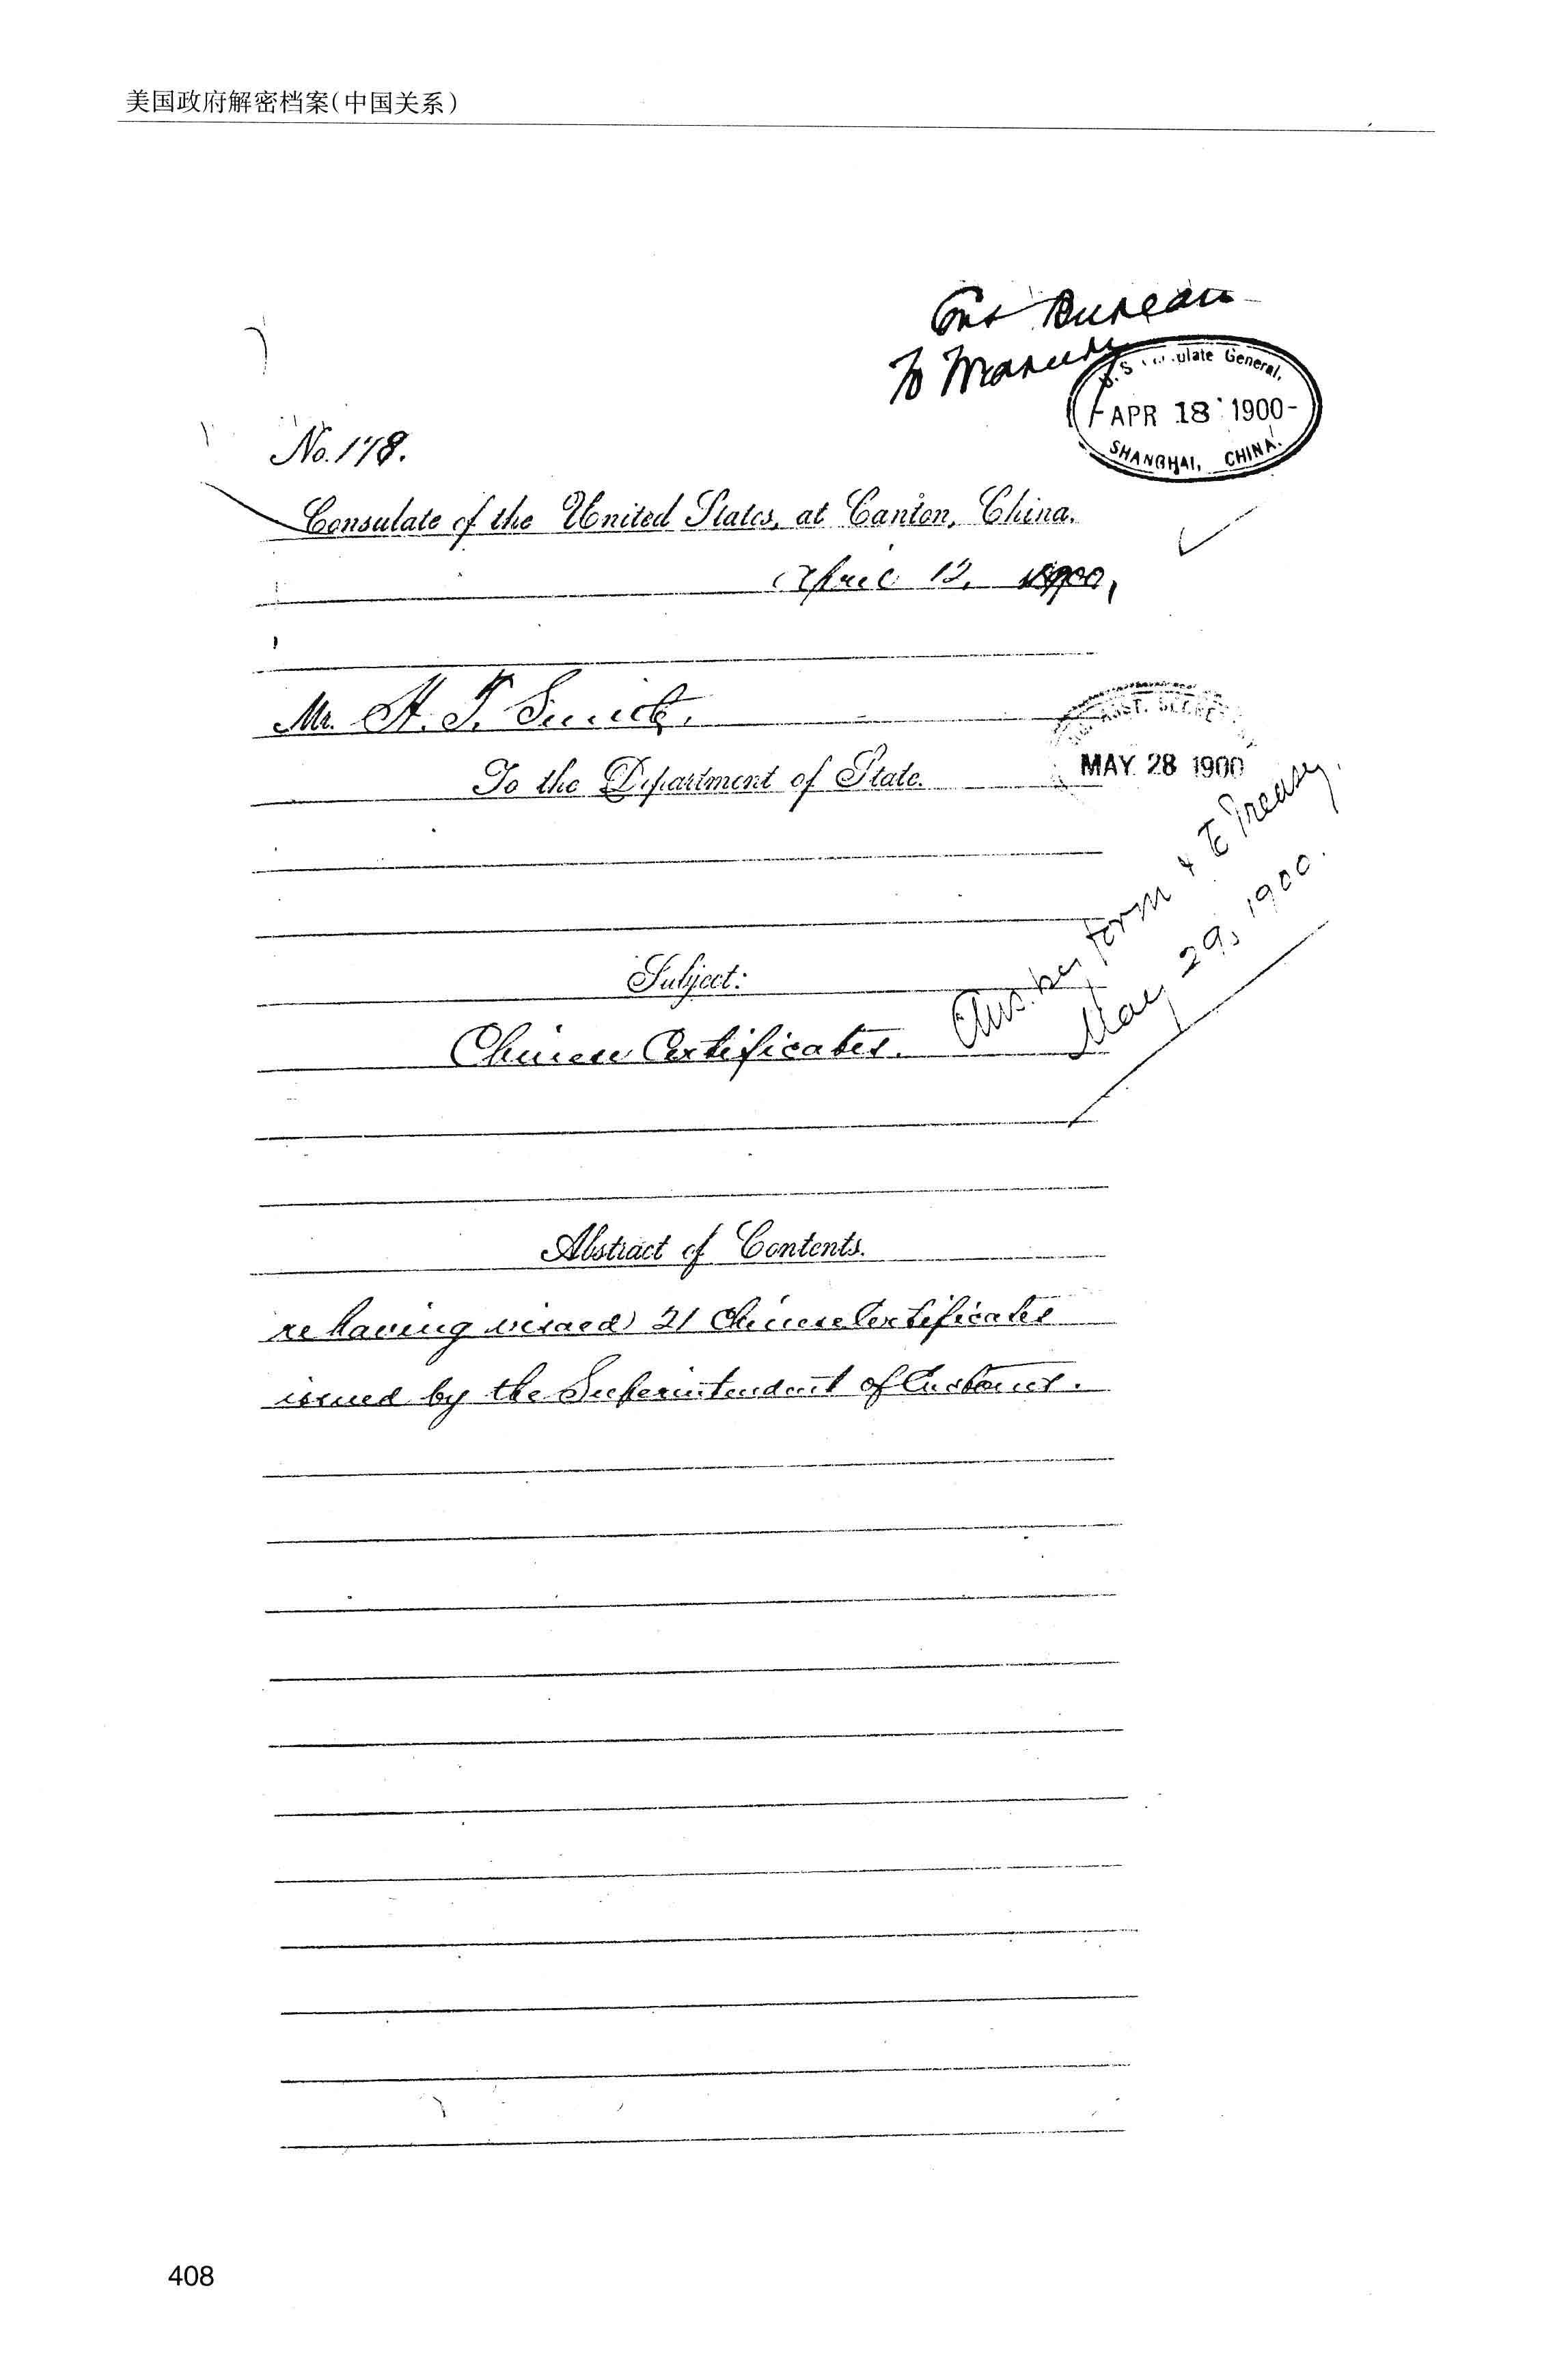 美国政府解密档案(中国关系)
Bureau
To
U.S. Consulate General,
APR 18 1900
SHANGHAI, CHINA.
No. 178.
Consulate of the United States, at Canton, China.
April 12, 1900,
Mr. H. F.
To the Department of State.
ASST. SECRE
MAY 28 1900
Ans. by form & to Treasy.
May 29, 1900.
Subject:
Chinese Certificates.
Abstract of Contents.
re having visaed 21 Chinese Certificates
issued by the Superintendent of Customs.
408